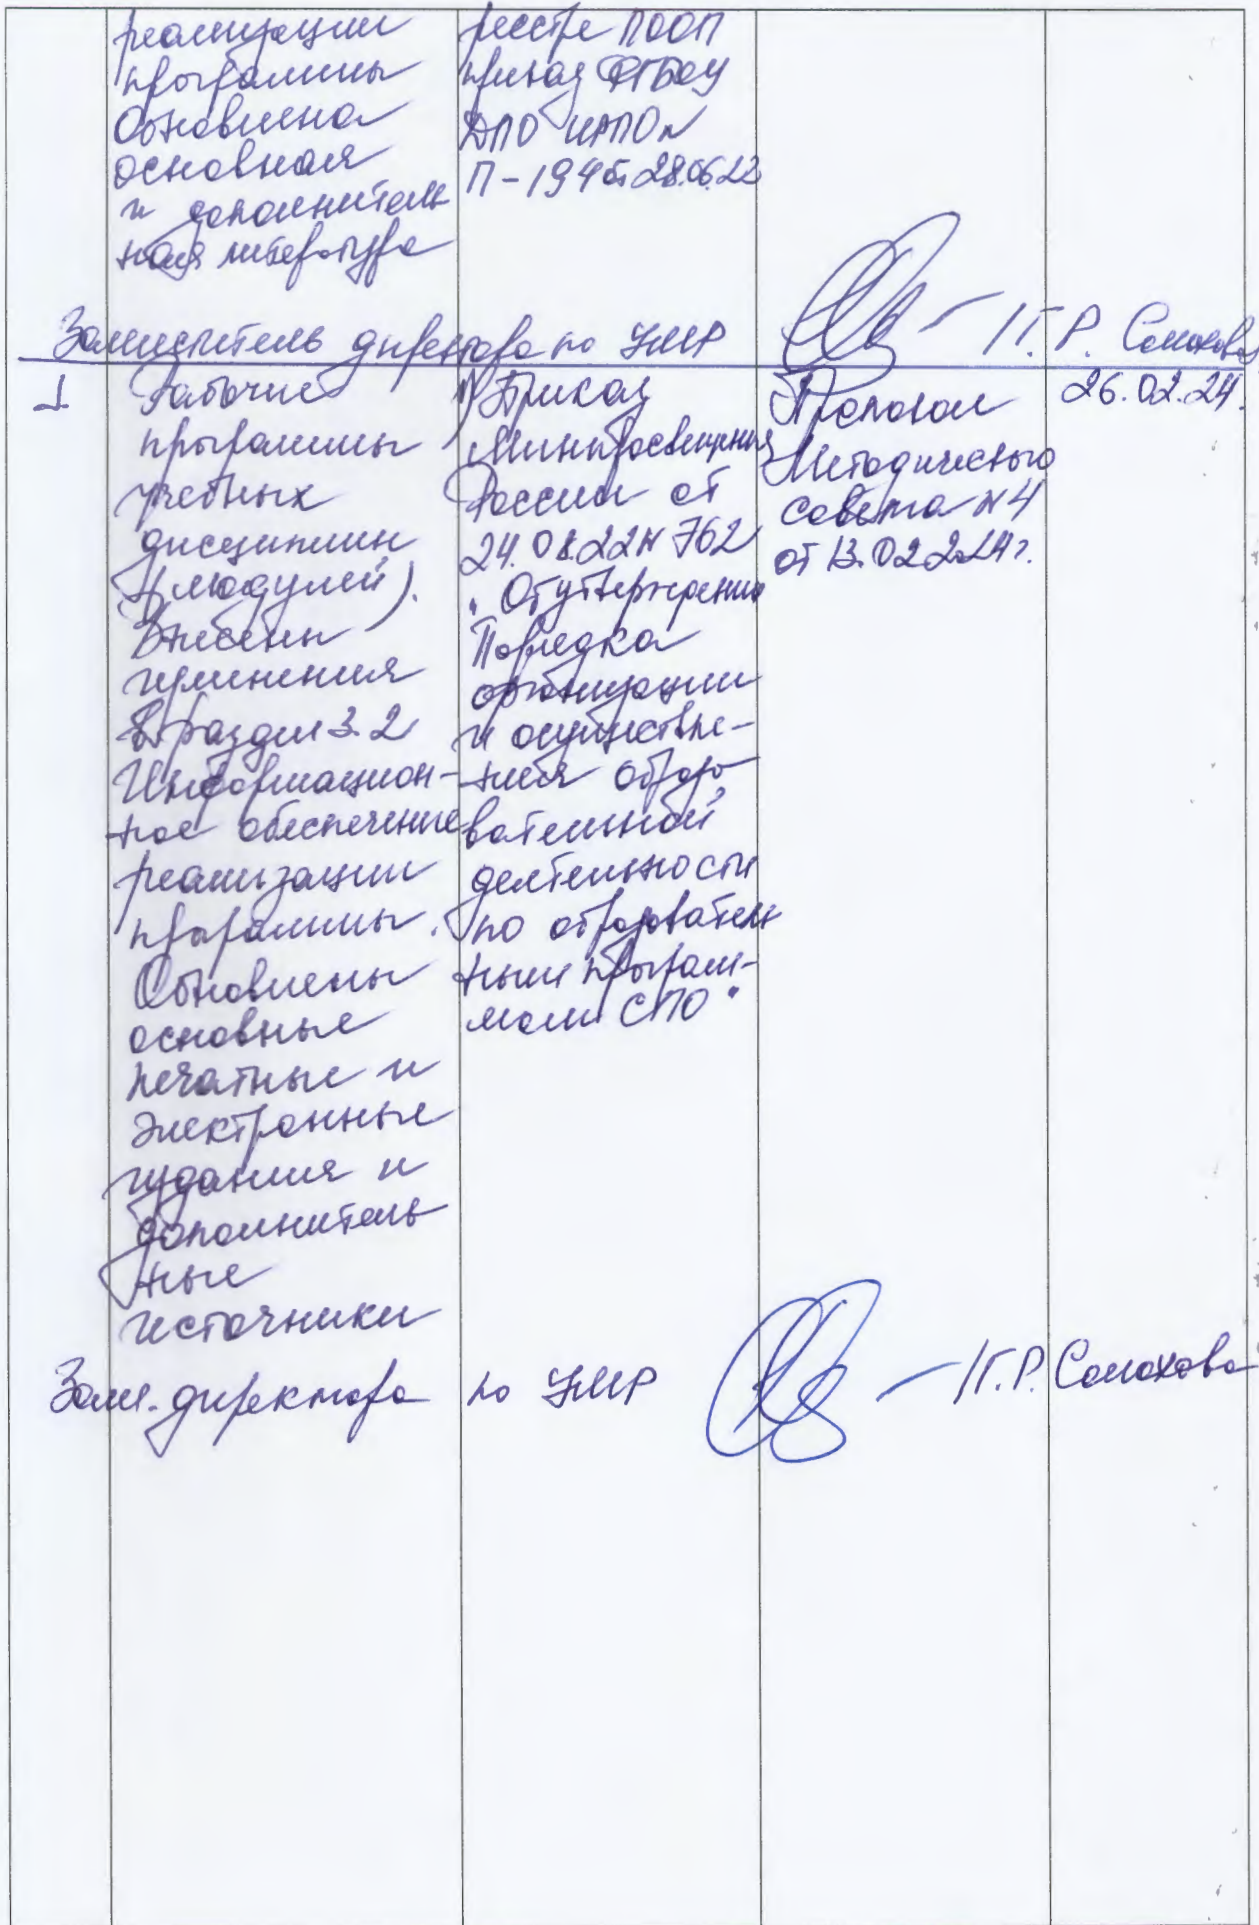 реализации
программы
Обновлена
основная
и дополнитель
ная литература
реестре ПООП
приказ ФГБОУ
ДПО ИРПО №
П-194 от 28.06.23
Заместитель директора по УМР
/Г.Р.
1
Рабочие
программы
учебных
дисциплин
(модулей).
Внесены
изменения
в раздел 3.2
Информацион-
ное обеспечение
реализации
программы.
Обновлены
основные
печатные и
электронные
издания и
дополнитель
ные
источники
1) Приказ
Минпросвещения
России от
24.08.22 № 762
"Об утверждении
Порядка
организации
и осуществле-
ния образо
вательной
деятельности
по образователь
ным програм-
мам СПО"
Протокол
Методического
совета №4
от 13.02.2024г.
26.02.24.
Зам. директора по УМР
/Г.Р.